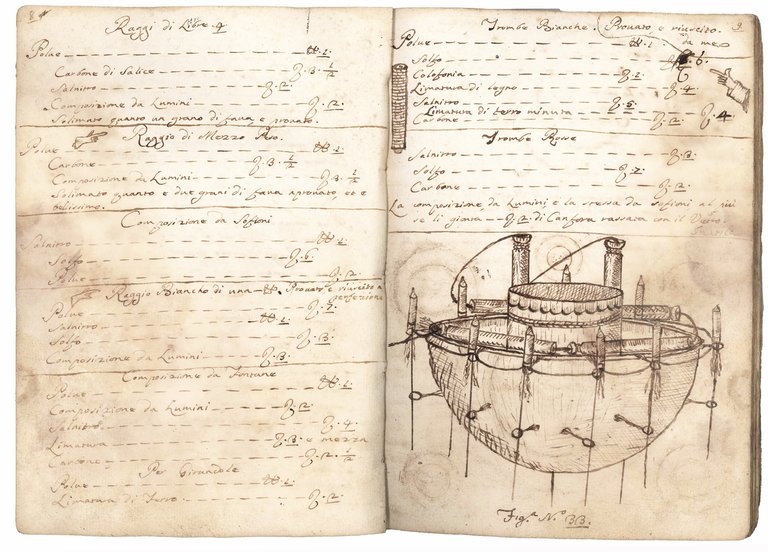 8
Raggi di Libre. 4
Polue ℔. 1.
Carbone di Salice ʒ. 3. ½
Salnitro ʒ. 12.
Composizione da Lumini ʒ. 12.
Solimato quanto un grano di faua e prouato.
Raggio di Mezzo
Polue ℔. 1.
Carbone ʒ. 3. ½
Composizione da Lumini ʒ. 3. ½
Solimato quanto e due grani di faua aprouato et e
belissimo.
Composizione da Sofioni
Salnitro ℔. 1.
Solfo ʒ. 6.
Polue ʒ. 12.
Raggio Bianche di una ℔. Prouato e riuscito a
perfezione
Polue
Salnitro ℔. 1.
Solfo ʒ. 13.
Composizione da Lumini ʒ. 3.
Composizione da Fontane
Polue ℔. 1.
Composizione da Lumini ʒ. 12.
Salnitro ʒ. 4.
Limatura ʒ. 3. e mezza
Carbone ʒ. 2. ½
Per Girandole
Polue ℔. 1.
Limatura di Ferro ʒ. 2.
9.
Trombe Bianche. Prouato e riuscito.
da me
Polue ℔. 1.
Solfo 6.
Colofonia ʒ. 2.
Limatura di legno ʒ. 4
Salnitro ʒ. 5.
Limatura di ferro minuta ʒ. 4
Carbone ʒ. 12.
Trombe Rosse
Salnitro ʒ. 3.
Solfo ʒ. 2.
Carbone ʒ. 12.
La composizione da Lumini e la stessa da Sofioni al piú
se li gionta ʒ. 2. di Canfora rassata con il Vetro.
Fig.ª N.º 33.